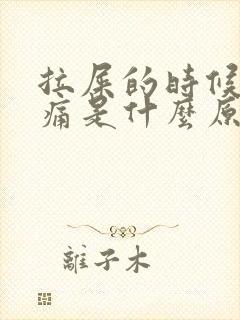 拉屎的時候
痛是什麼原
離子木